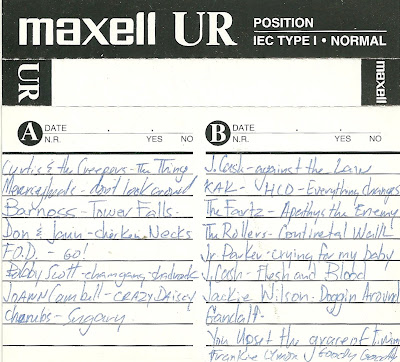 maxell UR POSITION
IEC TYPE I • NORMAL
UR
maxell
A DATE
N.R. YES NO
Curtis & the Creepers - the Things
don't look around
Barness - Tower Falls -
Don & Jaun - chicken Necks
F.O.D. - GO!
Bobby Scott - chaingang -
JoAnn Cambell - CRAZY DAISEY
cherubs - Sugary
B DATE
N.R. YES NO
J. Cash - against the Law
KAK - HCD - Everything changes
The Fartz - Apathys the Enemy
The Rollers - Continental Walk
Jr Parker - crying for my baby
J. Cash - Flesh and Blood
Jackie Wilson - Doggin Around
Gandalf -
You Upset the
Frankie Lymon - Goody Goody